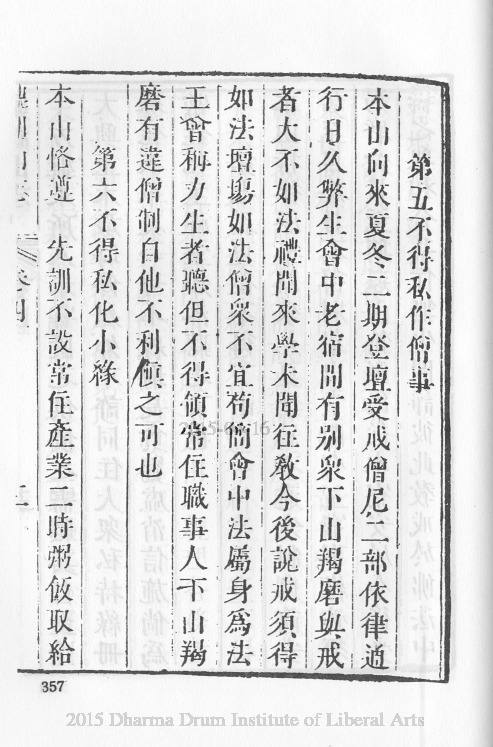 第五不得私作僧事
本山向來夏冬二期登壇受戒僧尼二部依律遒
行日久弊生會中老宿間有別衆下山羯磨與戒
者大不如法禮聞來學未聞徃敎今後說戒須得
如法壇塲如法僧衆不宜苟簡會中法屬身爲法
王曾稱力生者聽但不得領常住職事人下山羯
磨有違僧制自他不利慎之可也
第六不得私化小緣
本山恪遵 先訓不設常住產業二時粥飯取給
卷四
三
357
2015 Dharma Drum Institute of Liberal Arts